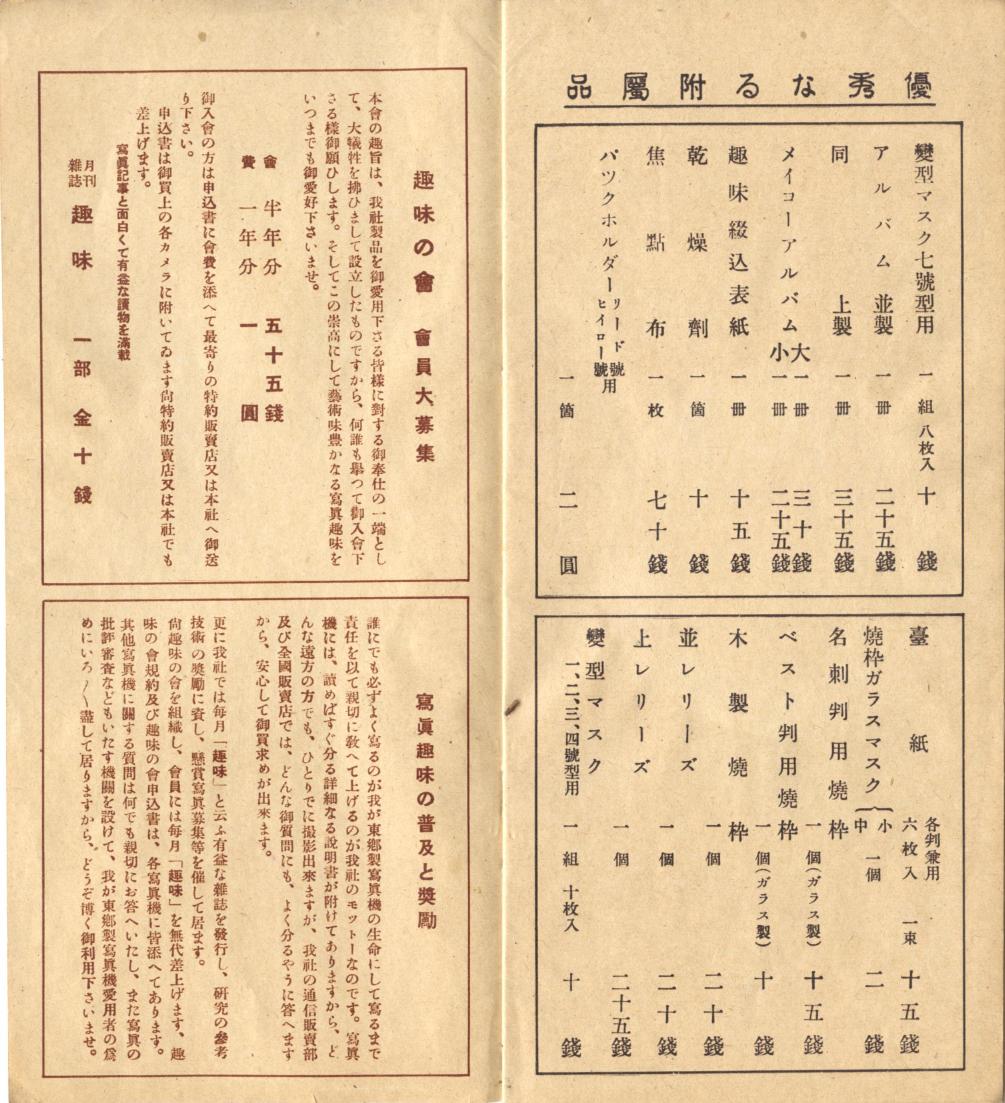 優秀なる附屬品
變型マスク七號型用 一組 八枚入 十錢
アルバム 並製 一冊 二十五錢
同 上製 一冊 三十五錢
メイコーアルバム 大 一冊 三十錢
小 一冊 二十五錢
趣味綴込表紙 一冊 十五錢
乾燥劑 一箇 十錢
焦點布 一枚 七十錢
パツクホルダー リード號 ヒイロー號 用 一箇 二圓
臺紙 各判兼用 六枚入 一束 十五錢
燒枠ガラスマスク 小 中 一個 二錢
名刺判用燒枠 一個(ガラス製) 十五錢
ベスト判用燒枠 一個(ガラス製) 十錢
木製燒枠 一個 二十錢
並レリーズ 一個 二十錢
上レリーズ 一個 二十五錢
變型マスク 一、二、三、四號型用 一組 十枚入 十錢
趣味の會 會員大募集
本會の趣旨は、我社製品を御愛用下さる皆樣に對する御奉仕の一端とし
て、大犧牲を拂ひまして設立したものですから、何誰も擧つて御入會下
さる樣御願ひします。そしてこの崇高にして藝術味豊かなる寫眞趣味を
いつまでも御愛好下さいませ。
會費 半年分 五十五錢
一年分 一圓
御入會の方は申込書に會費を添へて最寄りの特約販賣店又は本社へ御送
り下さい。
申込書は御買上の各カメラに附いてゐます尙特約販賣店又は本社でも
差上げます。
寫眞記事と面白くて有益な讀物を滿載
月刊雜誌 趣味 一部金十錢
寫眞趣味の普及と奬勵
誰にでも必ずよく寫るのが我が東鄕製寫眞機の生命にして寫るまで
責任を以て親切に敎へて上げるのが我社のモツトーなのです。寫眞
機には、讀めばすぐ分る詳細なる說明書が附けてありますから、ど
んな遠方の方でも、ひとりでに撮影出來ますが、我社の通信販賣部
及び全國販賣店では、どんな御質問にも、よく分るやうに答へます
から、安心して御買求めが出來ます。
更に我社では每月「趣味」と云ふ有益な雜誌を發行し、硏究の參考
技術の奬勵に資し、懸賞寫眞募集等を催して居ます。
尙趣味の會を組織し、會員には每月「趣味」を無代差上げます、趣
味の會規約及び趣味の會申込書は、各寫眞機に皆添へてあります。
其他寫眞機に關する質問は何でも親切にお答へいたし、また寫眞の
批評審査などもいたす機關を設けて、我が東鄕製寫眞機愛用者の爲
めにいろ〳〵盡して居りますから、どうぞ博く御利用下さいませ。